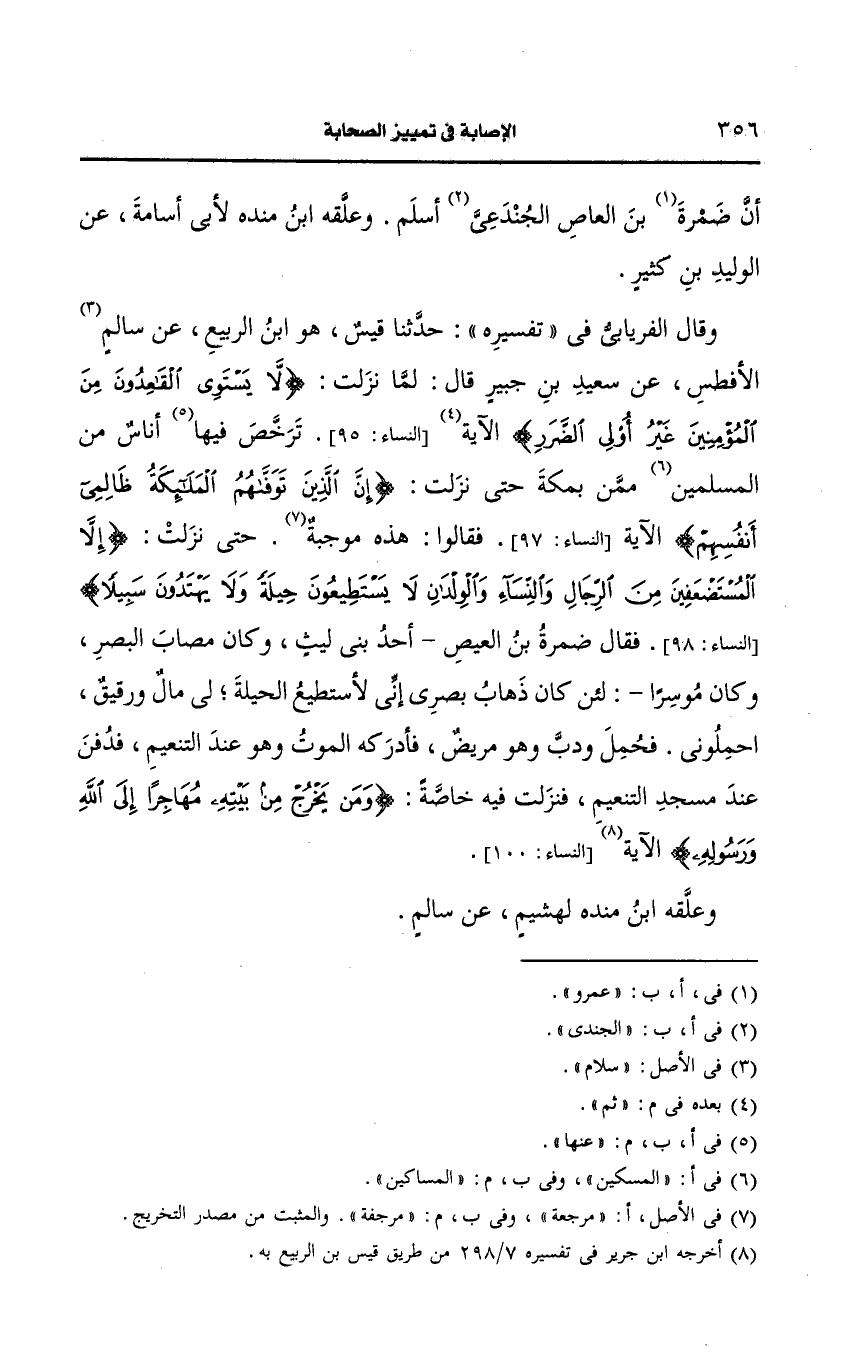 ٣٥٦ الإصابة فى تمييز الصحابة
أنَّ ضَمْرةَ(١) بنَ العاصِ الجُنْدَعِىَّ(٢) أسلَم . وعلَّقه ابنُ منده لأبى أسامةَ ، عن
الوليدِ بنِ كثيرٍ .
وقال الفريابىُّ فى « تفسيرِه » : حدَّثنا قيسٌ ، هو ابنُ الربيعِ ، عن سالمٍ(٣)
الأفطسِ ، عن سعيدِ بنِ جبيرٍ قال : لمَّا نزَلت : ﴿لَّا يَسْتَوِى ٱلْقَٰعِدُونَ مِنَ
ٱلْمُؤْمِنِينَ غَيْرُ أُوْلِى ٱلضَّرَرِ﴾ الآية(٤) [النساء: ٩٥] . تَرَخَّصَ فيها(٥) أناسٌ من
المسلمين(٦) ممَّن بمكةَ حتى نزَلت : ﴿إِنَّ ٱلَّذِينَ تَوَفَّىٰهُمُ ٱلْمَلَٰٓئِكَةُ ظَالِمِىٓ
أَنفُسِهِمْ﴾ الآية [النساء: ٩٧] . فقالوا : هذه موجبةٌ(٧) . حتى نزَلتْ : ﴿إِلَّا
ٱلْمُسْتَضْعَفِينَ مِنَ ٱلرِّجَالِ وَٱلنِّسَآءِ وَٱلْوِلْدَٰنِ لَا يَسْتَطِيعُونَ حِيلَةً وَلَا يَهْتَدُونَ سَبِيلًا﴾
[النساء: ٩٨] . فقال ضمرةُ بنُ العيصِ - أحدُ بنى ليثٍ ، وكان مصابَ البصرِ ،
وكان مُوسِرًا - : لئن كان ذَهابُ بصرِى إنِّى لأستطيعُ الحيلةَ ؛ لى مالٌ ورقيقٌ ،
احمِلُونى . فحُمِلَ ودبَّ وهو مريضٌ ، فأدرَكه الموتُ وهو عندَ التنعيمِ ، فدُفنَ
عندَ مسجدِ التنعيمِ ، فنزَلت فيه خاصَّةً : ﴿وَمَن يَخْرُجْ مِنۢ بَيْتِهِۦ مُهَاجِرًا إِلَى ٱللَّهِ
وَرَسُولِهِۦ﴾ الآية(٨) [النساء: ١٠٠] .
وعلَّقه ابنُ منده لهشيمٍ ، عن سالمٍ .
(١) فى ، أ ، ب : « عمرو » .
(٢) فى أ ، ب : « الجندى » .
(٣) فى الأصل : « سلام » .
(٤) بعده فى م : « ثم » .
(٥) فى أ ، ب ، م : « عنها » .
(٦) فى أ : « المسكين » ، وفى ب ، م : « المساكين » .
(٧) فى الأصل ، أ : « مرجعة » ، وفى ب ، م : « مرجفة » . والمثبت من مصدر التخريج .
(٨) أخرجه ابن جرير فى تفسيره ٢٩٨/٧ من طريق قيس بن الربيع به .